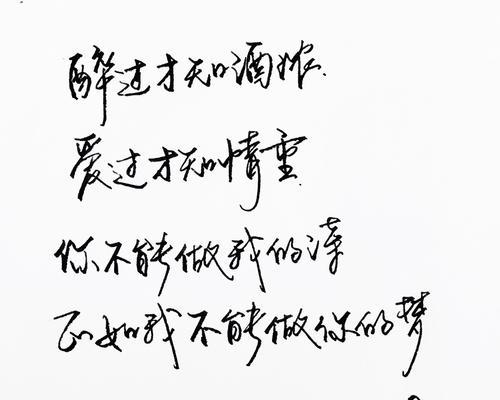 醉过才知酒浓.
爱过才知情重.
你不能做我的诗
正如我不能做你的梦